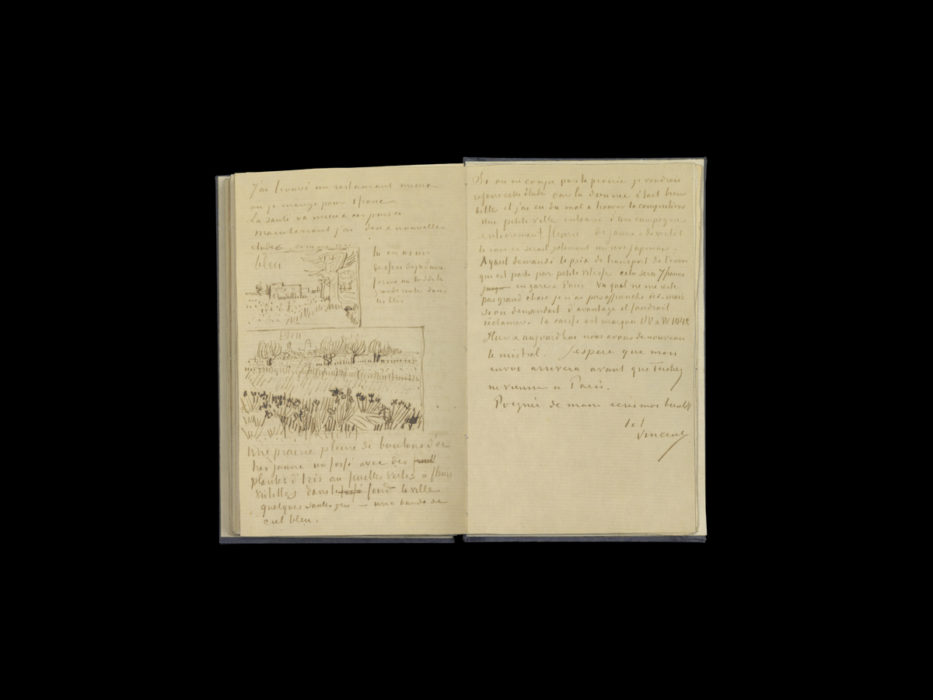 J'ai trouvé un restaurant mieux
où je mange pour 1 franc
La santé va mieux ces jours ci
Maintenant j'ai deux nouvelles
études comme
bleu
tu en as un
dessin déjà d'une
ferme au bord de la
grande route dans
les blés.
bleu
Une prairie pleine de boutons d'or
très jaune un fossé avec des
plantes d'iris aux feuilles vertes à fleurs
violettes dans le fond la ville
quelques saules gris – une bande de
ciel bleu.
Si on ne fauche pas la prairie je voudrais
refaire cette étude car la donnée était bien
belle et j'ai eu du mal à trouver la composition
Une petite ville entourée d'une campagne
entièrement fleurie de jaune et de violet
ce serait joliment un rêve japonais.
Ayant demandé le prix de transport de l'envoi
qui est parti par petite vitesse cela sera 7 francs
en gare à Paris. Va que il ne me reste
pas grand chose je n'ai pas affranchi ici mais
si on demandait davantage il faudrait
réclamer. La caisse est marquée
Hier & aujourd'hui nous avons de nouveau
le mistral. J'espère que mon
envoi arrivera avant que Tersteeg
ne vienne à Paris.
Poignée de main écris moi bientôt
t. à t.
Vincent